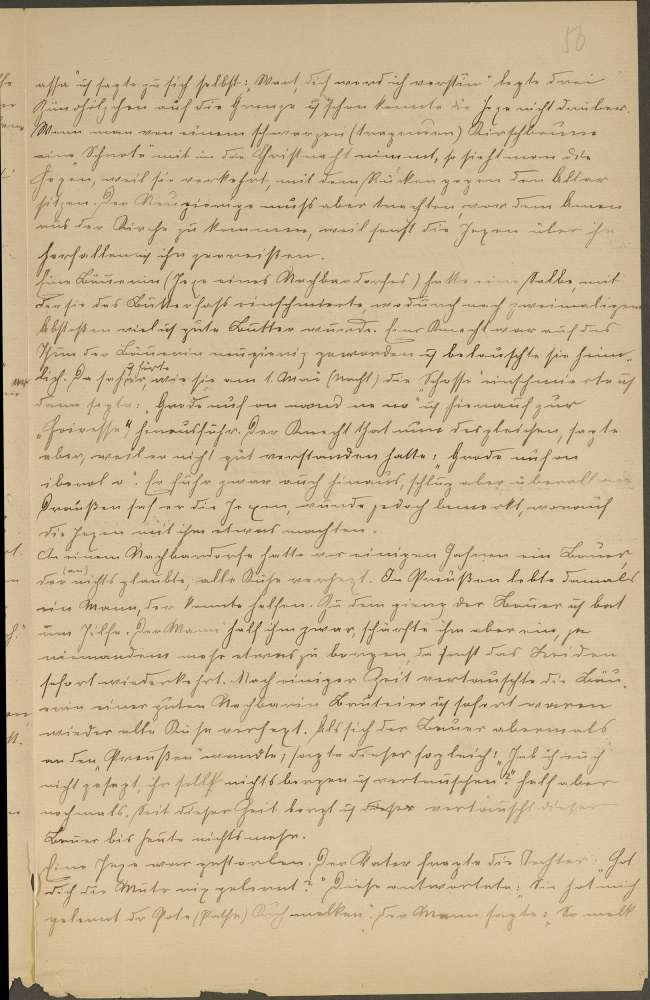 56
assa" u. sagte zu sich selbst: „Wart, dich werd ich verstin" legte drei
Zündhölzchen auf die Gränze u. schon konnte die Hexe nicht drüber.
Wenn man von einem schwarzen (tragenden) Kirschbaume
eine „Schnote" mit in die Christnacht nimmt, so sieht man die
Hexen, weil sie verkehrt, mit dem Rücken gegen den Altar
sitzen. Der Neugierige muß aber trachten, vor dem Amen
aus der Kirche zu kommen, weil sonst die Hexen über ihn
herfallen u. ihn zerreißen.
Eine Bäuerin (Hexe eines Nachbardorfes) hatte eine Salbe, mit
der sie das Butterfaß einschmierte, wodurch nach zweimaligem
Abstoßen viel u. gute Butter wurde. Ein Knecht war auf das
Thun der Bäuerin neugierig geworden u. belauschte sie heim-
lich. Da sah er, u. hörte wie sie am 1. Mai (Nacht) die „Schosse" einschmierte u.
dann sagte: „Grode nuf on nond no no" u. hienauf zur
hinausfuhr. Der Knecht that nun desgleichen, sagte
aber, weil er nicht gut verstanden hatte: „Grode nuf on
iberol o". Er fuhr zwar auch hinaus, schlug aber überall an.
Draußen sah er die Hexen, wurde jedoch bemerkt, worauf
die Hexen mit ihm etwas machten.
In einem Nachbardorfe hatte vor einigen Jahren ein Bauer,
der (an) nichts glaubte, alle Kühe verhext. In Preußen lebte damals
ein Mann, der konnte helfen. Zu dem gieng der Bauer u. bat
um Hilfe. Der Mann half ihm zwar, schärfte ihm aber ein, ja
niemandem mehr etwas zu borgen, da sonst das Leiden
sofort wiederkehrt. Nach einiger Zeit vertauschte die Bäu-
erin einer guten Nachbarin Bruteier u. sofort waren
wieder alle Kühe verhext. Als sich der Bauer abermals
an den „Preußen" wandte, sagte dieser sogleich: „Hab ich euch
nicht gesagt, ihr sollt nichts borgen u. vertauschen?" half aber
nochmals. Seit dieser Zeit borgt u. vertauscht dieser
Bauer bis heute nichts mehr.
Eine Hexe war gestorben. Der Vater fragte die Tochter: „Hot
dich die Mutr nix gelernt?" Diese antwortete: „Sie hat mich
gelernt de Pote (Pathe) Kuh melken". Der Mann sagte: „So melk